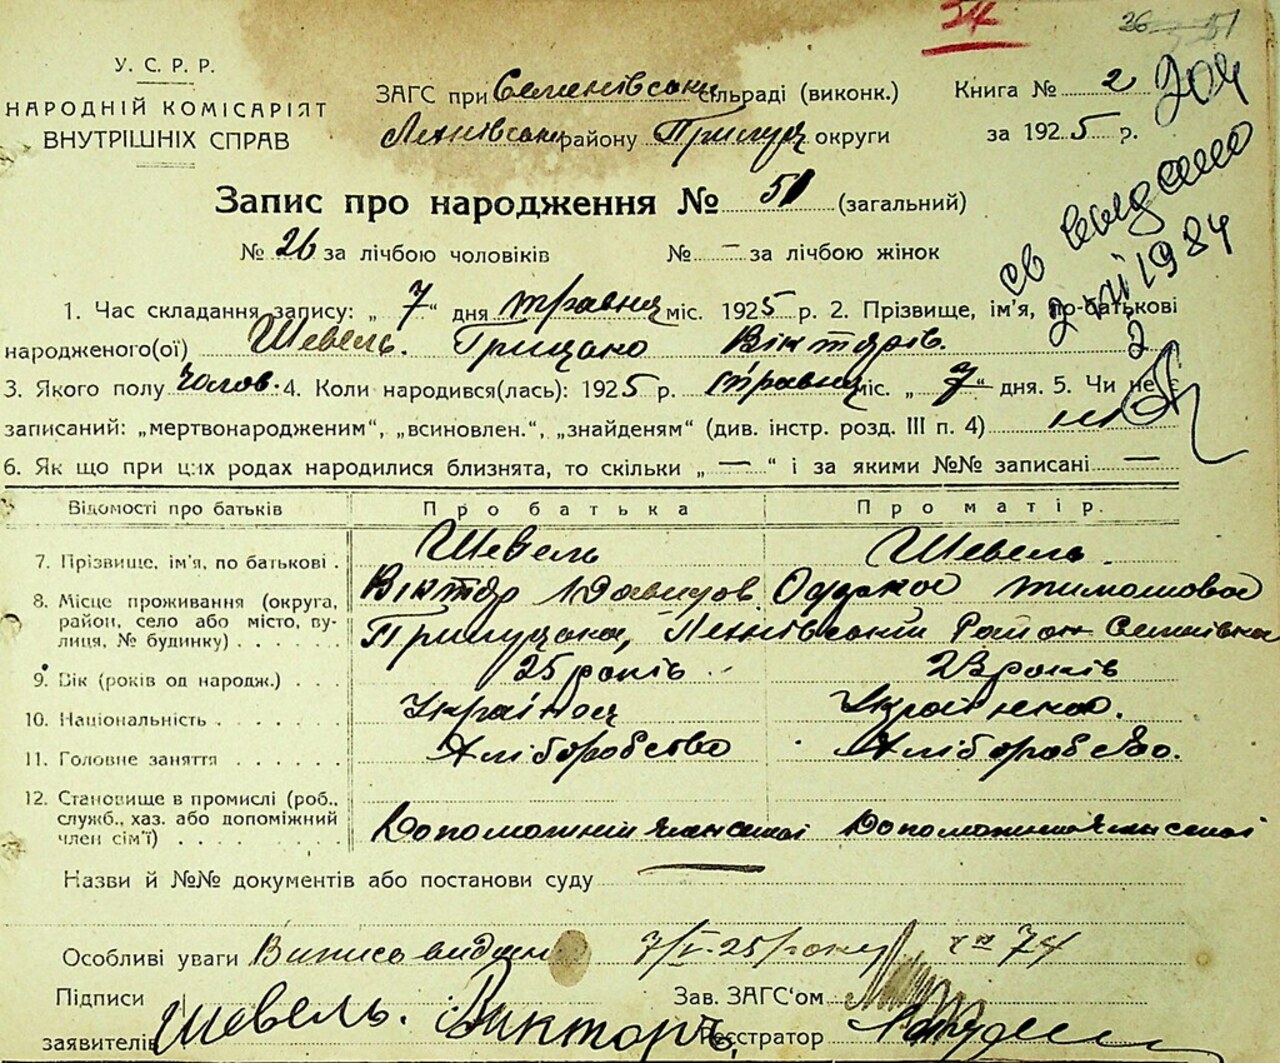 34
26 51
У. С. Р. Р.
НАРОДНІЙ КОМІСАРІЯТ
ВНУТРІШНІХ СПРАВ
ЗАГС при Семенівськ сільраді (виконк.) Книга № 2 204
району Прилуц округи за 1925 р.
Запис про народження № 51 (загальний)
№ 26 за лічбою чоловіків № — за лічбою жінок
1. Час складання запису: „ 7 “ дня травня міс. 1925 р. 2. Прізвище, ім'я, по-батькові
народженого(ої) Шевель. Грицько Вікторів.
св видано
2 VII 1984
3. Якого полу чолов. 4. Коли народився(лась): 1925 р. травня міс. „ 7 “ дня. 5. Чи не є
записаний: „мертвонародженим“, „всиновлен.“, „знайденям“ (див. інстр. розд. III п. 4)
6. Як що при цих родах народилися близнята, то скільки „ — “ і за якими №№ записані —
Відомості про батьків Про батька Про матір.
7. Прізвище, ім'я, по батькові . Шевель Шевель.
Віктор Давидов. Одарка Тимошовна
8. Місце проживання (округа,
район, село або місто, ву-
лиця, № будинку) . . . . . . Прилуцька, район Семенівка
9. Вік (років од народж.) . . . 25 років 23 років
10. Національність . . . . . . . Українец Українка.
11. Головне заняття . . . . . . Хліборобство Хліборобство.
12. Становище в промислі (роб.,
служб., хаз. або допоміжний
член сім'ї) . . . . . . . . Допоможний член семьї Допоможний член семьї
Назви й №№ документів або постанови суду —
Особливі уваги Випись видана 7/V-25 року за № 74
Підписи Зав. ЗАГС'ом
заявителів Шевель. Викторъ. Реєстратор